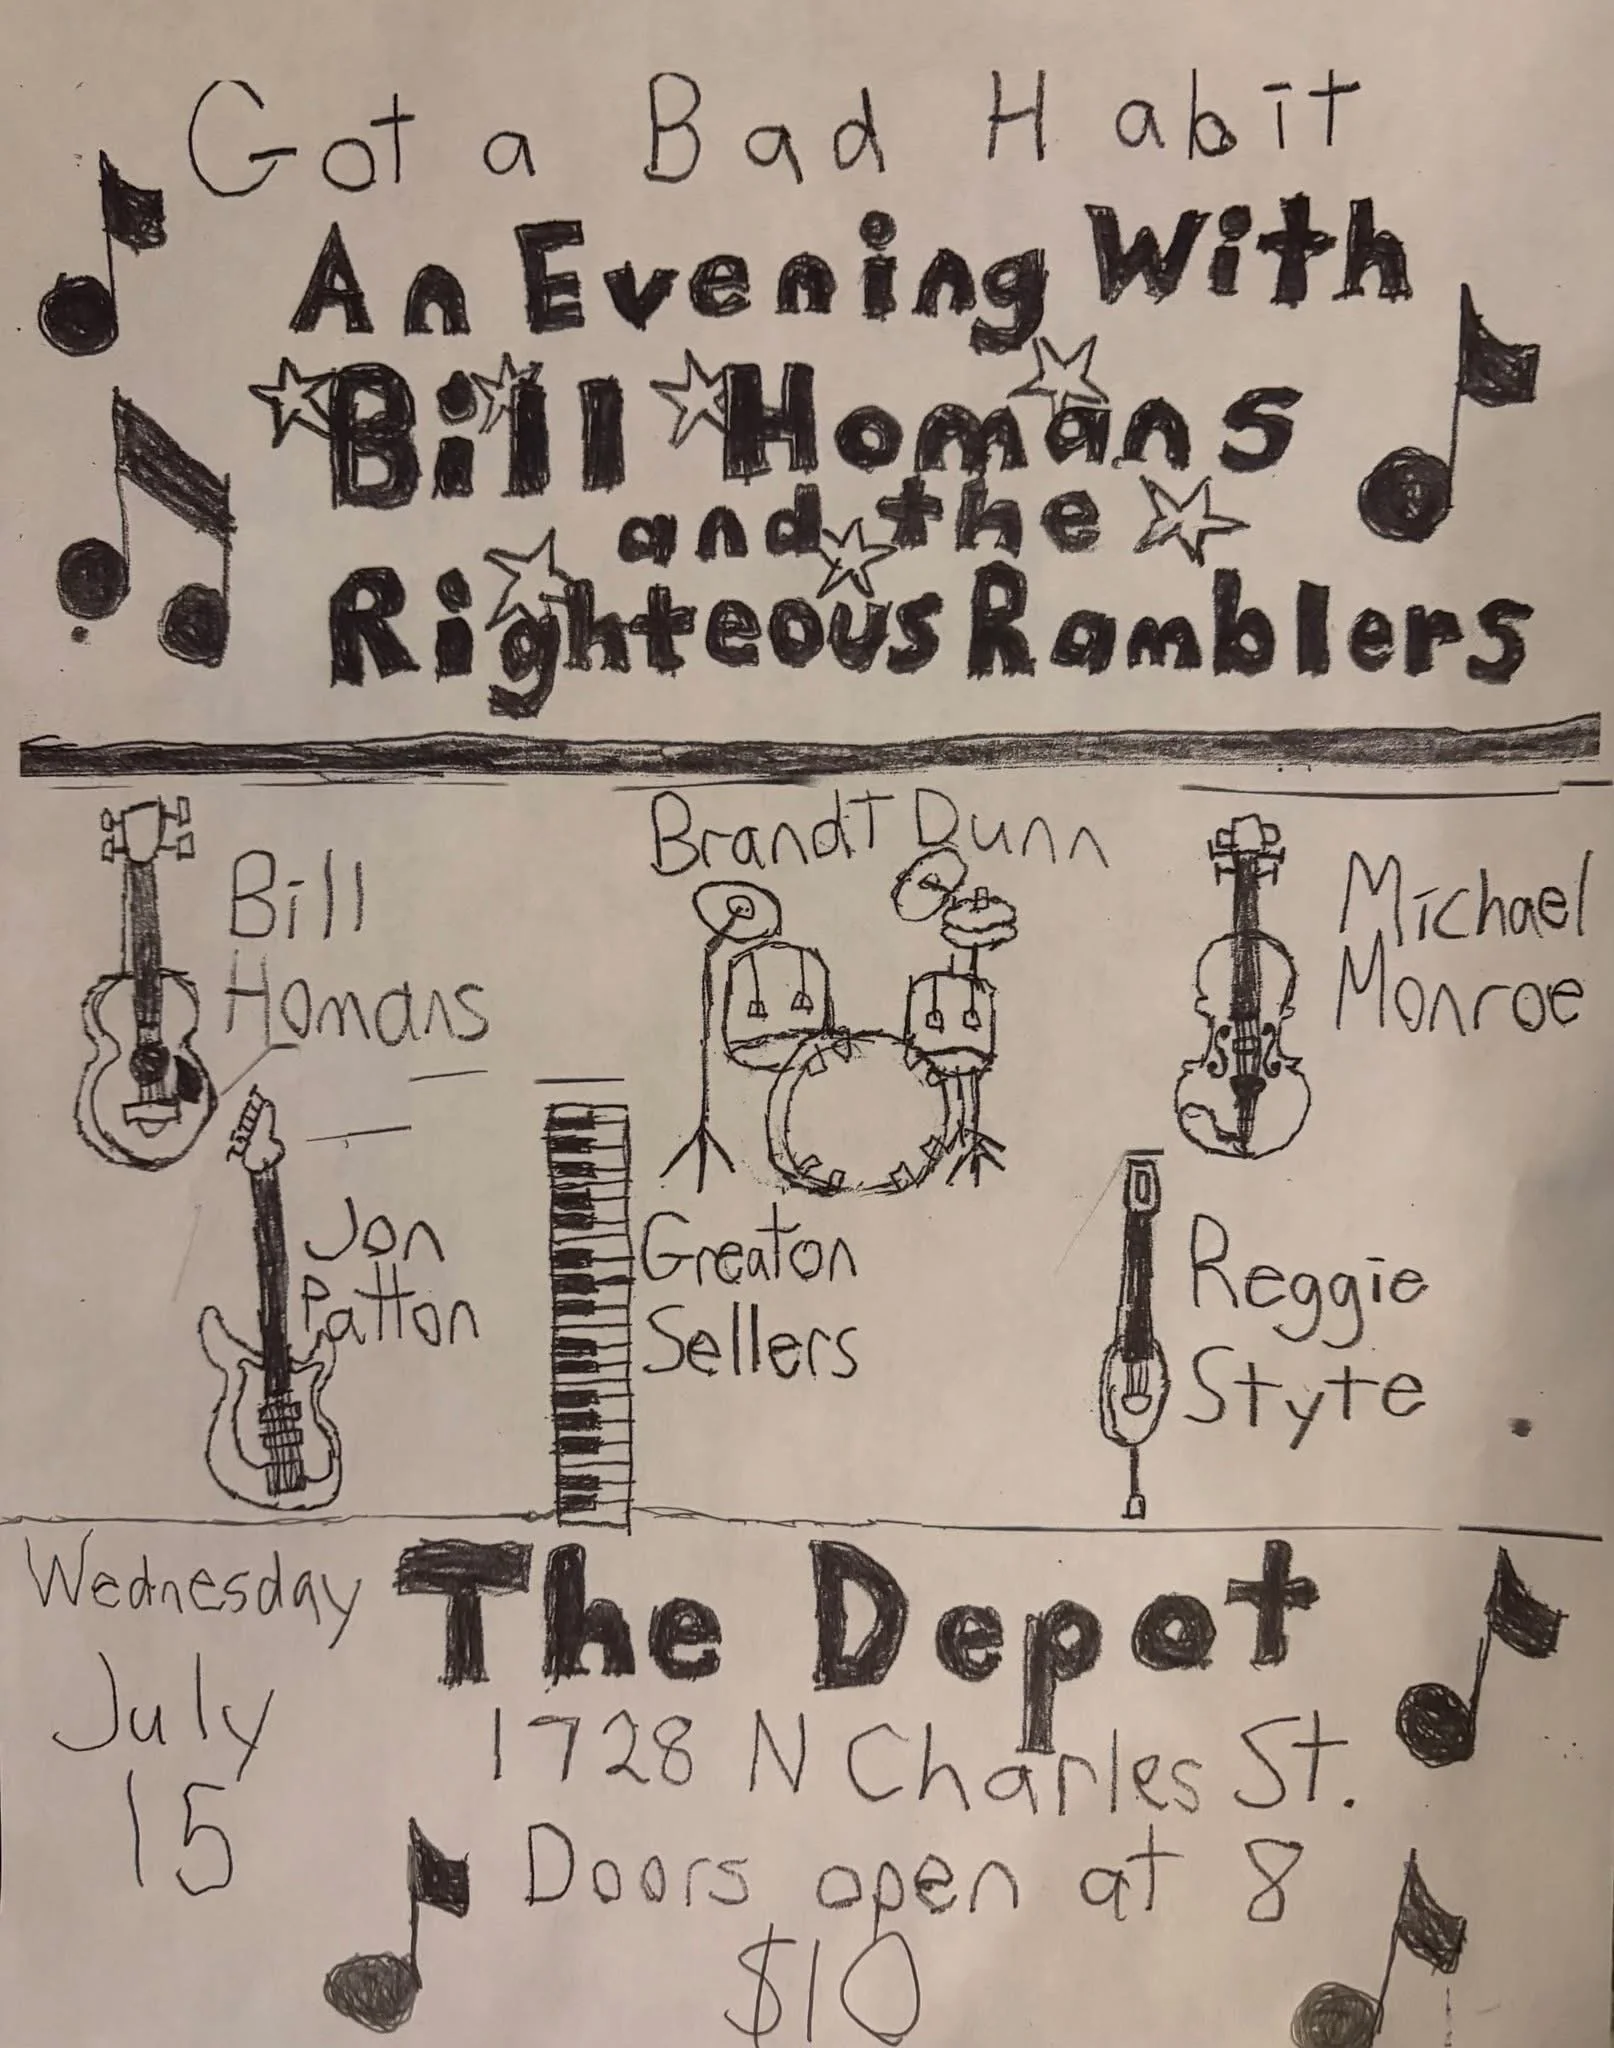 Got a Bad Habit
An Evening With
Bill Homans
and the
Righteous Ramblers
Bill
Homans
Brandt Dunn
Michael
Monroe
Jon
Patton
Greaton
Sellers
Reggie
Styte
Wednesday
July
15
The Depot
1728 N Charles St.
Doors open at 8
$10